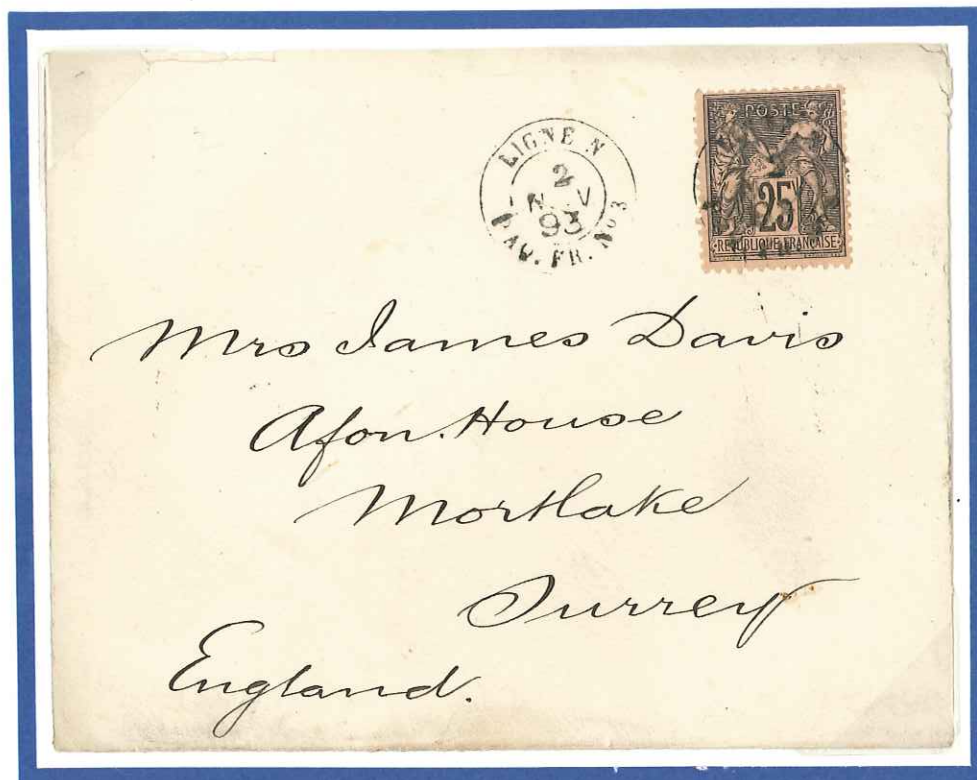 LIGNE N
2
93
PAQ. FR. No 3
POSTE
25
REPUBLIQUE FRANCAISE
Mrs James Davis
Afon House
Mortlake
Surrey
England.